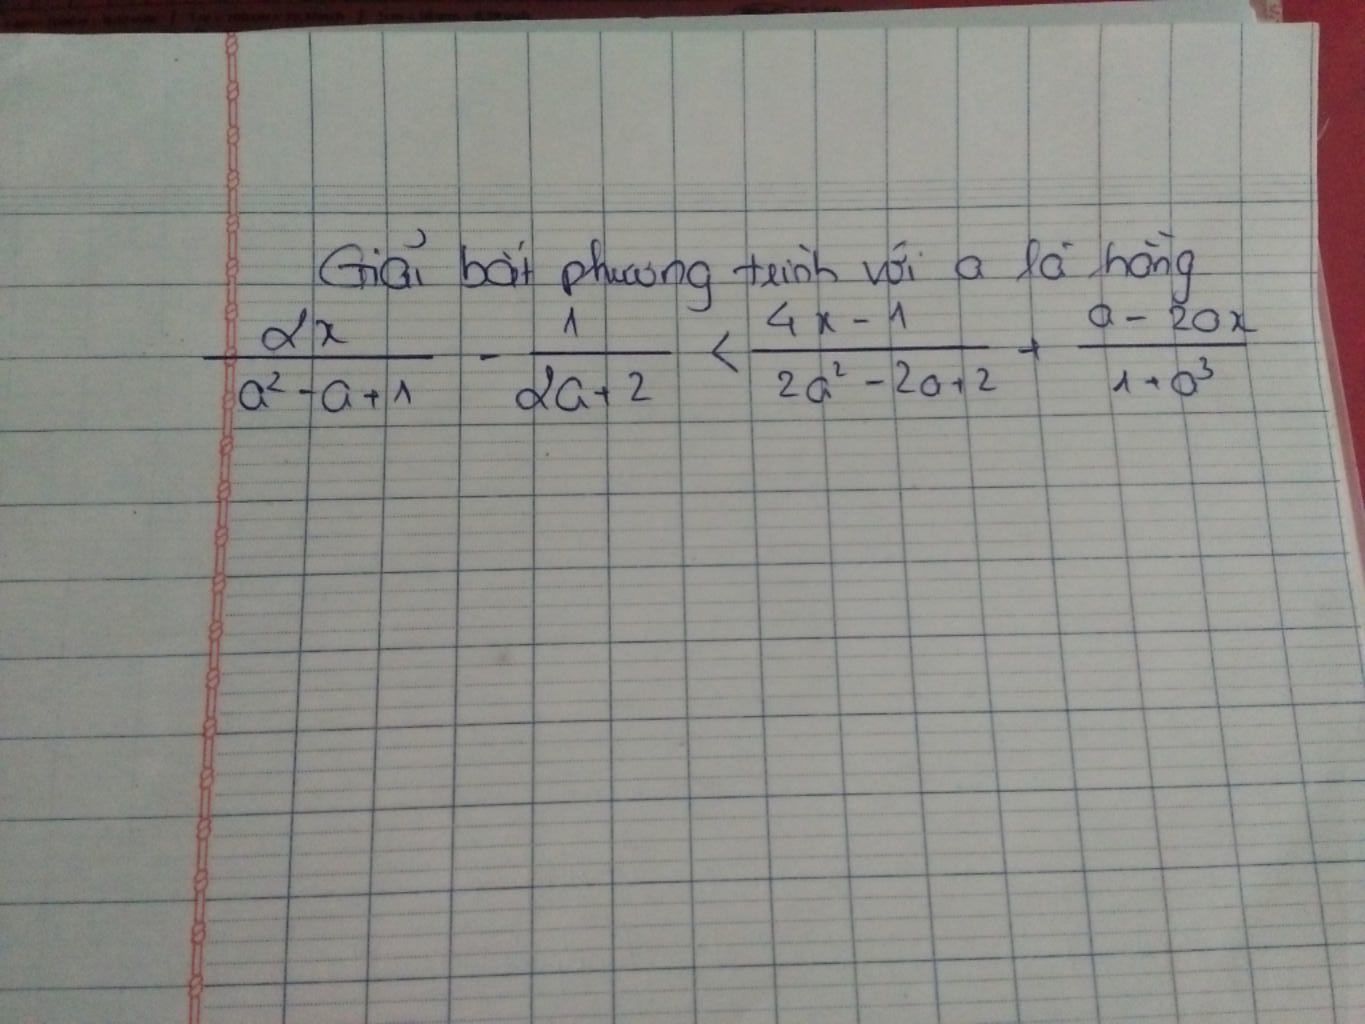 Giải bất phương trình với a là hằng
2x / (a² - a + 1) - 1 / (2a + 2) < (4x - 1) / (2a² - 2a + 2) + (a - 2ax) / (1 + a³)